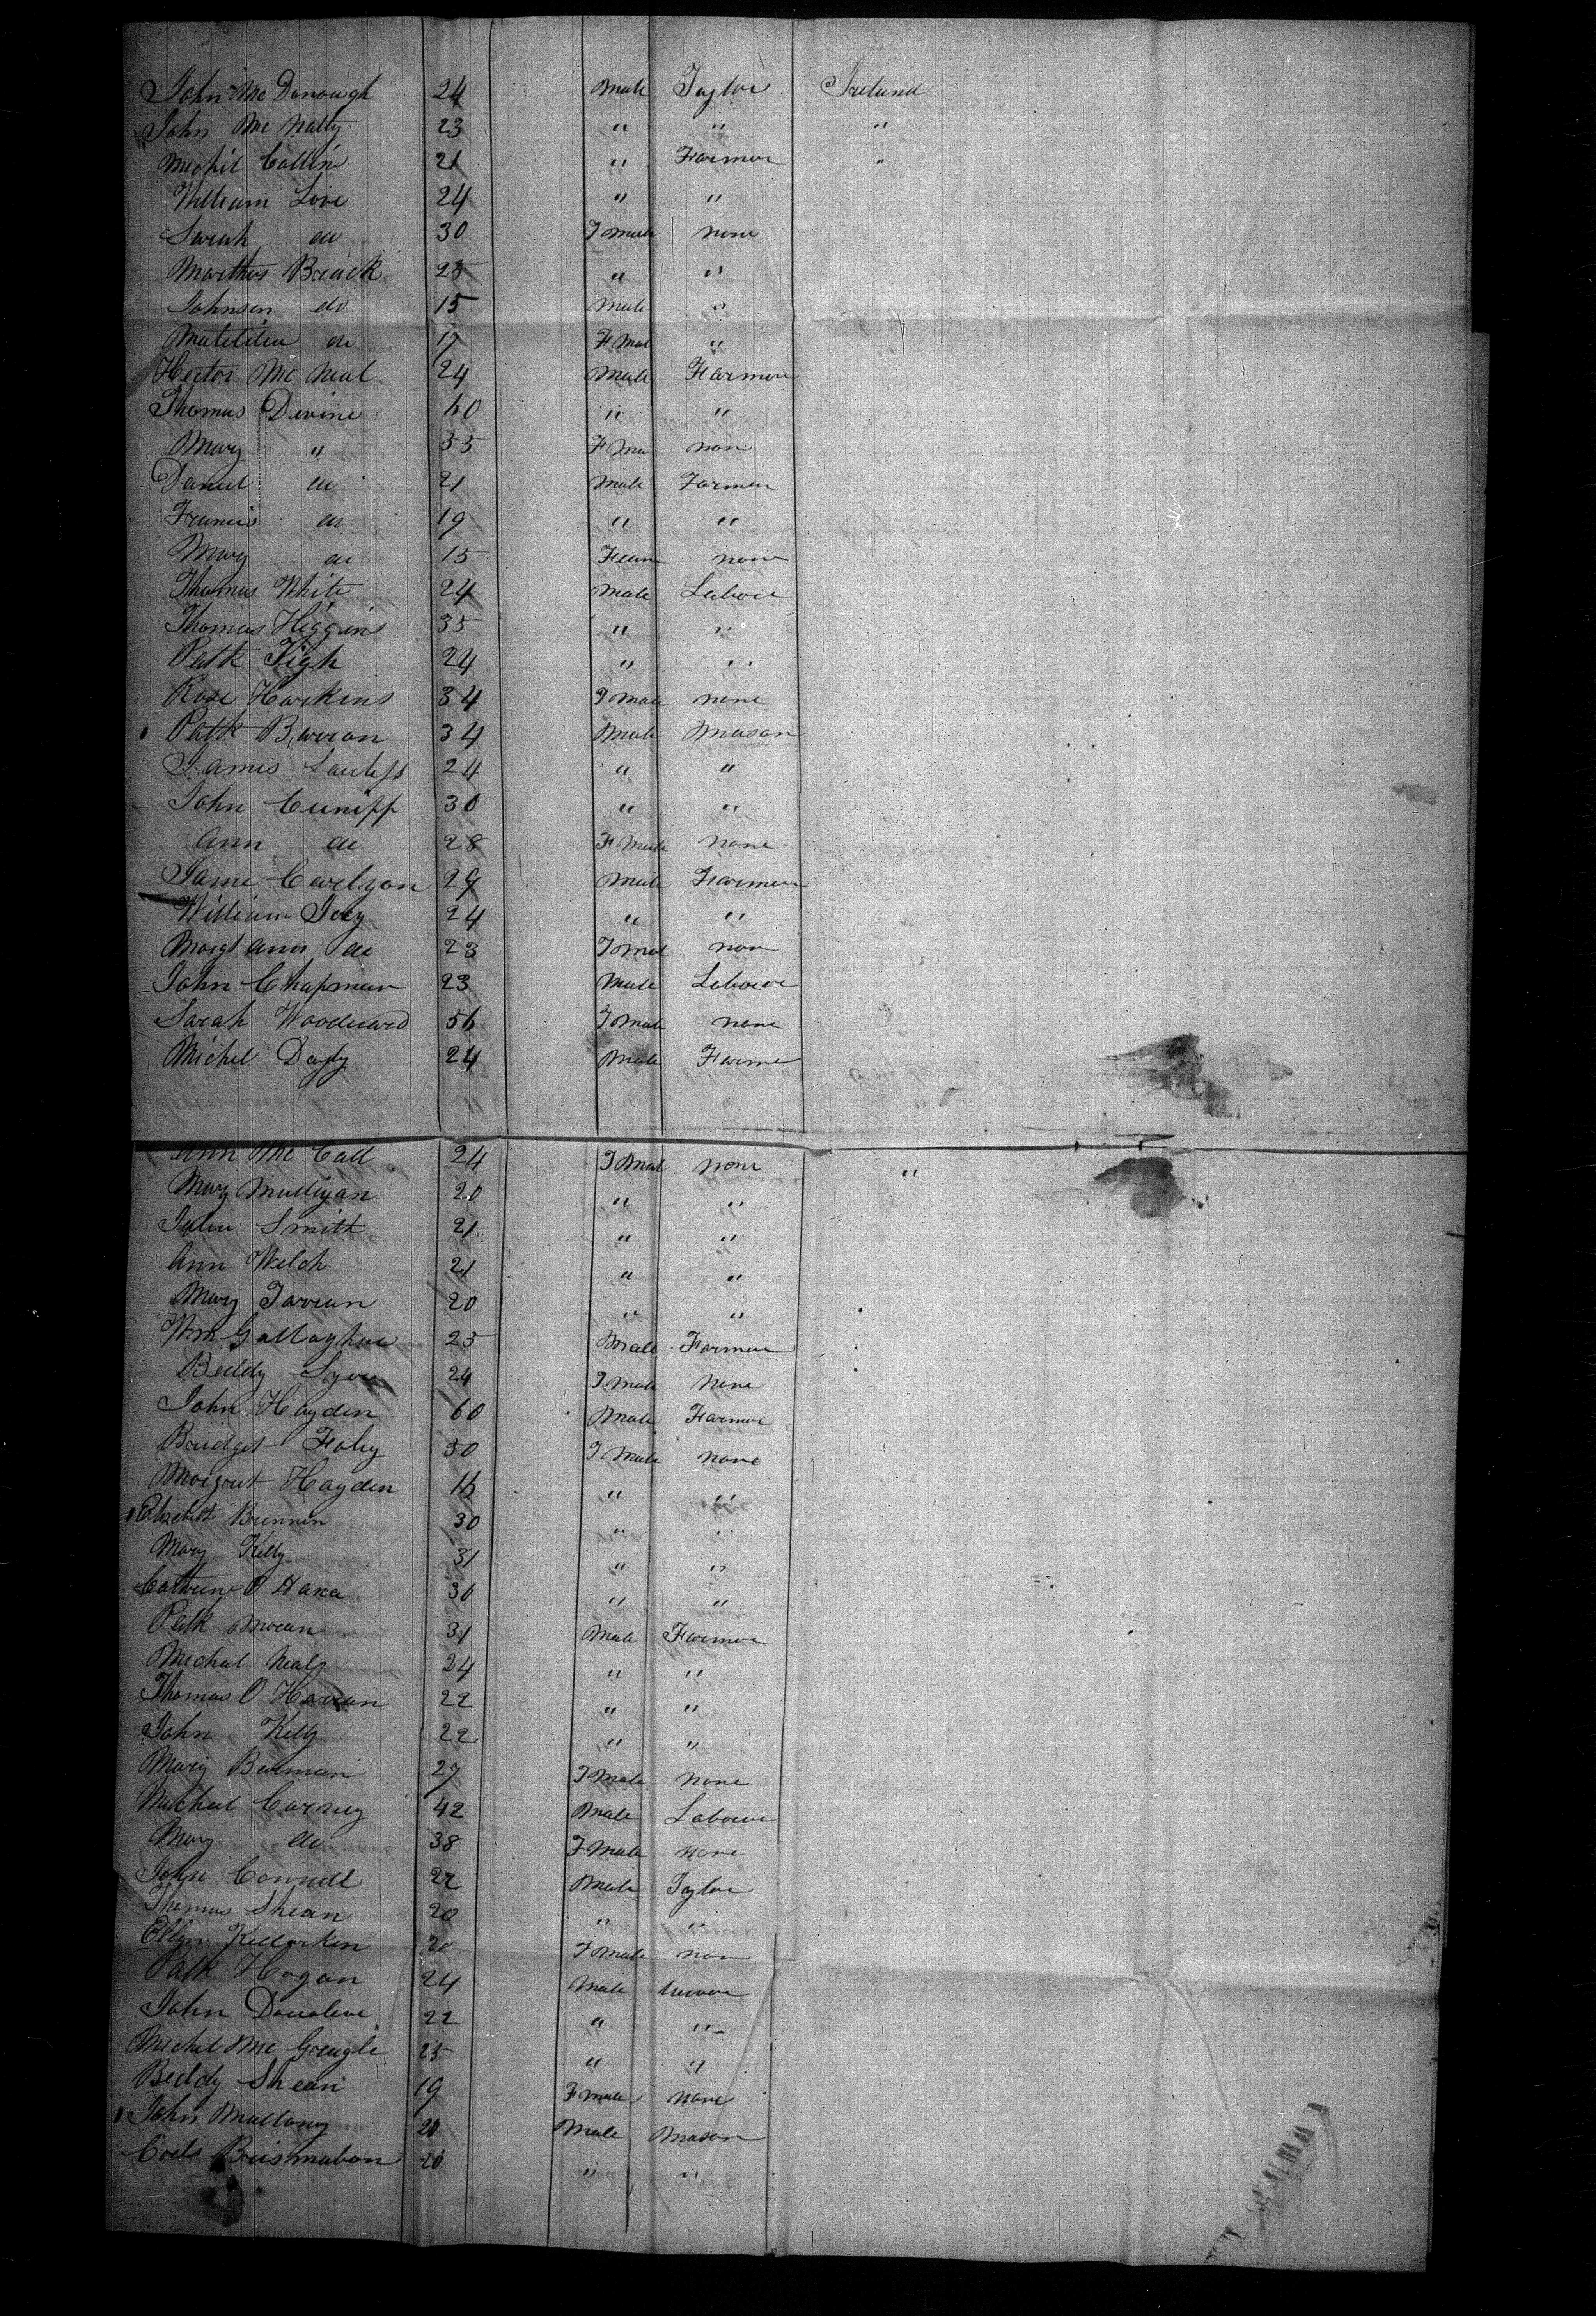 John McDonough 24 Male Taylor Ireland
John McNally 23 " " "
Michil Collin 21 " Farmer "
William Love 24 " "
Sarah do 30 Fmale none
Marthus Brack 25 " "
Johnson do 15 Male "
Matildia do 17 FMal "
Hector McNeal 24 Male Farmer
Thomas Devine 60 " "
Mary " 55 FMa non
Daniel do 21 Male Farmer
Francis do 19 " "
Mary do 15 Feam none
Thomas White 24 Male Laboie
Thomas Higgins 35 " "
Patk Tigh 24 " "
Rose Harkins 34 Fmale none
Patk Barron 34 Male Mason
James Lawless 24 " "
John Cuniff 30 " "
Ann do 28 FMale none
Jame Carlyon 29 Male Farmer
William Ivey 24 " "
Margt Ann do 23 Fmal non
John Chapman 23 Male Laboure
Sarah Woodward 56 Fmale none
Michel Dayly 24 Male Farme
Ann McCall 24 Fmal none "
Mary Mulligan 20 " "
Julia Smith 21 " "
Ann Welch 21 " "
Mary Farran 20 " "
Wm Gallagher 25 Male Farmer
Beddy 24 Fmale none
John Hayden 60 Male Farmer
Bridget Foley 50 Fmale none
Margret Hayden 16 " "
Elzebett Brennen 30 " "
Mary Kelly 31 " "
Cathrine O Hara 30 " "
Patk Moran 31 Male Farmer
Michal Nealy 24 " "
Thomas O Haran 22 " "
John Kelly 22 " "
Mary 27 Fmale none
Michal Carney 42 Male Laboure
Mary do 38 Fmale none
John Connell 22 Male Taylor
Thomas Shean 20 " "
Ellen Killarken 20 Fmale non
Patk Hogan 24 Male
John 22 " "
Michel Mc 25 " "
Beddy Shean 19 Fmale none
John Mullany 20 Male Mason
20 " "